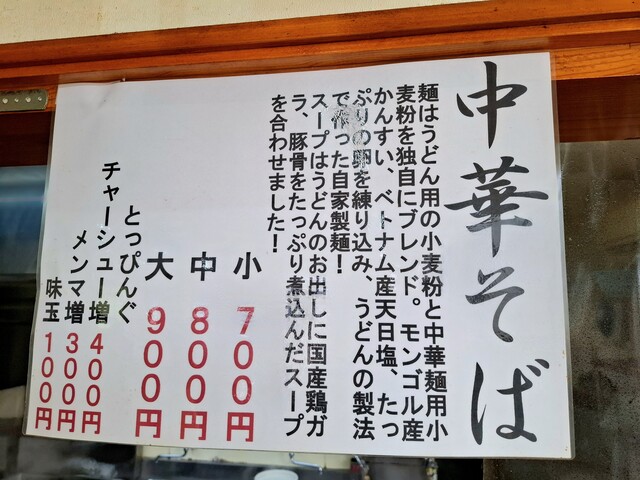 中華そば
麺はうどん用の小麦粉と中華麺用小
麦粉を独自にブレンド。モンゴル産
かんすい、ベトナム産天日塩、たっ
ぷりの卵を練り込み、うどんの製法
で作った自家製麺！
スープはうどんのお出しに国産鶏ガ
ラ、豚骨をたっぷり煮込んだスープ
を合わせました！
小 700円
中 800円
大 900円
とっぴんぐ
チャーシュー増 400円
メンマ増 300円
味玉 100円